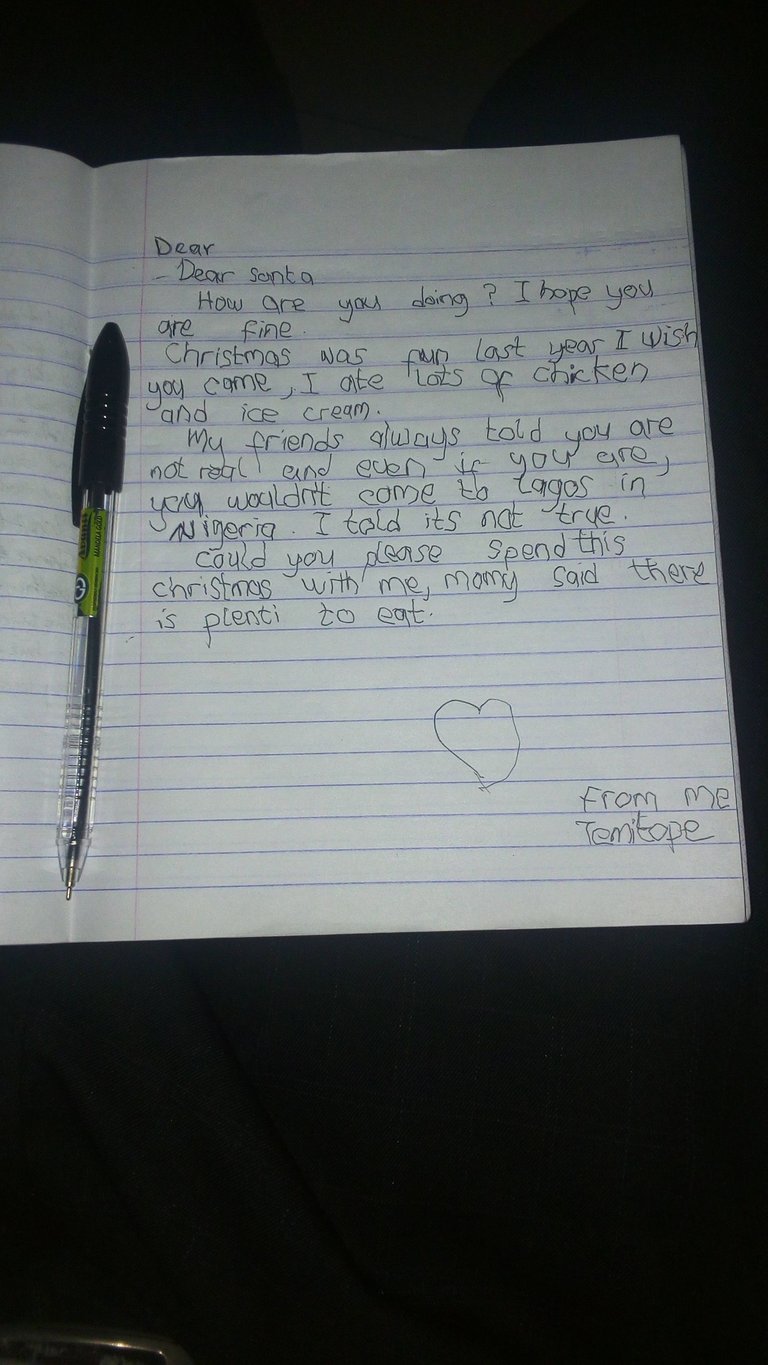 Dear
- Dear Santa
How are you doing ? I hope you
are fine.
Christmas was fun last year I wish
you came, I ate lots of chicken
and ice cream.
My friends always told you are
not real and even if you are,
you wouldn't come to Lagos in
Nigeria. I told its not true.
Could you please spend this
christmas with me, momy said there
is plenti to eat.
From me
Temitope